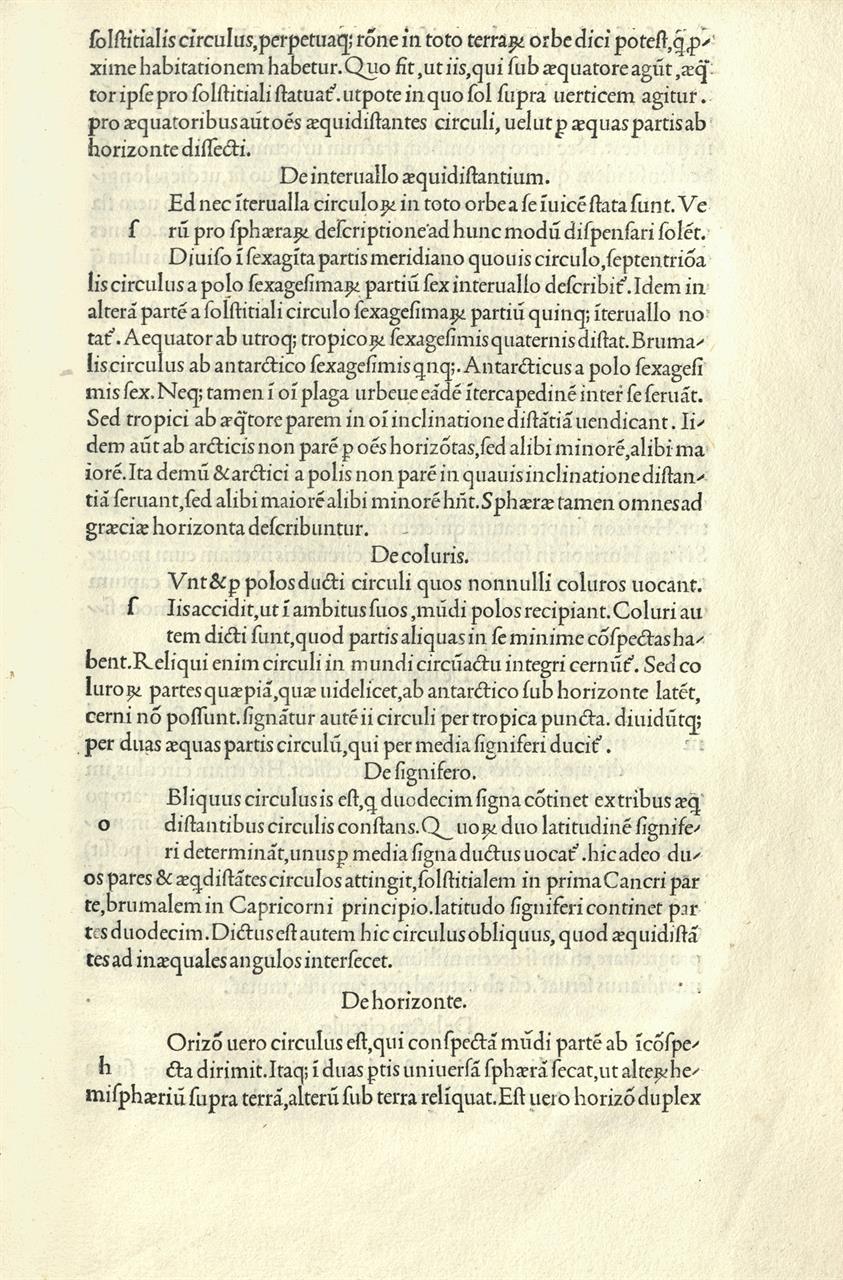 ſolſtitialis circulus,perpetuaq; rōne in toto terraꝝ orbe dici poteſt,q̄ ꝓ-
xime habitationem habetur.Quo fit,ut iis,qui ſub æquatore agūt,æq̄
tor ipſe pro ſolſtitiali ſtatuat᷑.utpote in quo ſol ſupra uerticem agitur.
pro æquatoribus aūt oēs æquidiſtantes circuli, uelut ꝑ æquas partis ab
horizonte diſſecti.
De interuallo æquidiſtantium.
Ed nec īterualla circuloꝝ in toto orbe a ſe īuicē ſtata ſunt. Ve
ſ rū pro ſphæraꝝ deſcriptione ad hunc modū diſpenſari ſolēt.
Diuiſo ī ſexagīta partis meridiano quouis circulo,ſeptentriōa
lis circulus a polo ſexageſimaꝝ partiū ſex interuallo deſcribit᷑.Idem in
alterā partē a ſolſtitiali circulo ſexageſimaꝝ partiū quinq; īteruallo no
tat᷑.Aequator ab utroq; tropicoꝝ ſexageſimis quaternis diſtat.Bruma-
lis circulus ab antarctico ſexageſimis qnq;.Antarcticus a polo ſexageſi
mis ſex.Neq; tamen ī oī plaga urbeue eādē ītercapedinē inter ſe ſeruāt.
Sed tropici ab æq̄tore parem in oī inclinatione diſtātiā uendicant. Ii-
dem aūt ab arcticis non parē ꝑ oēs horizōtas,ſed alibi minorē,alibi ma
iorē.Ita demū & arctici a polis non parē in quauis inclinatione diſtan-
tiā ſeruant,ſed alibi maiorē alibi minorē hn̄t.Sphæræ tamen omnes ad
græciæ horizonta deſcribuntur.
De coluris.
Vnt & ꝑ polos ducti circuli quos nonnulli coluros uocant.
ſ Iis accidit,ut ī ambitus ſuos,mūdi polos recipiant.Coluri au
tem dicti ſunt,quod partis aliquas in ſe minime cōſpectas ha-
bent.Reliqui enim circuli in mundi circūactu integri cernūt᷑. Sed co
luroꝝ partes quæpiā,quæ uidelicet,ab antarctico ſub horizonte latēt,
cerni nō poſſunt.ſignātur autē ii circuli per tropica puncta. diuidūtq;
per duas æquas partis circulū,qui per media ſigniferi ducit᷑.
De ſignifero.
Bliquus circulus is eſt,q duodecim ſigna cōtinet ex tribus æq̄
o diſtantibus circulis conſtans.Quoꝝ duo latitudinē ſignife-
ri determināt,unus ꝑ media ſigna ductus uocat᷑.hic adeo du-
os pares & æqdiſtātes circulos attingit,ſolſtitialem in prima Cancri par
te,brumalem in Capricorni principio.latitudo ſigniferi continet par
tes duodecim.Dictus eſt autem hic circulus obliquus, quod æquidiſtā
tes ad inæquales angulos interſecet.
De horizonte.
Orizō uero circulus eſt,qui conſpectā mūdi partē ab īcōſpe-
h cta dirimit.Itaq; ī duas ꝑtis uniuerſā ſphærā ſecat,ut alteꝝ he-
miſphæriū ſupra terrā,alterū ſub terra relīquat.Eſt uero horizō duplex